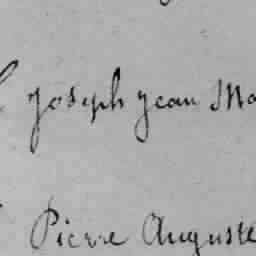 Joseph Jean Ma
Pierre Auguste